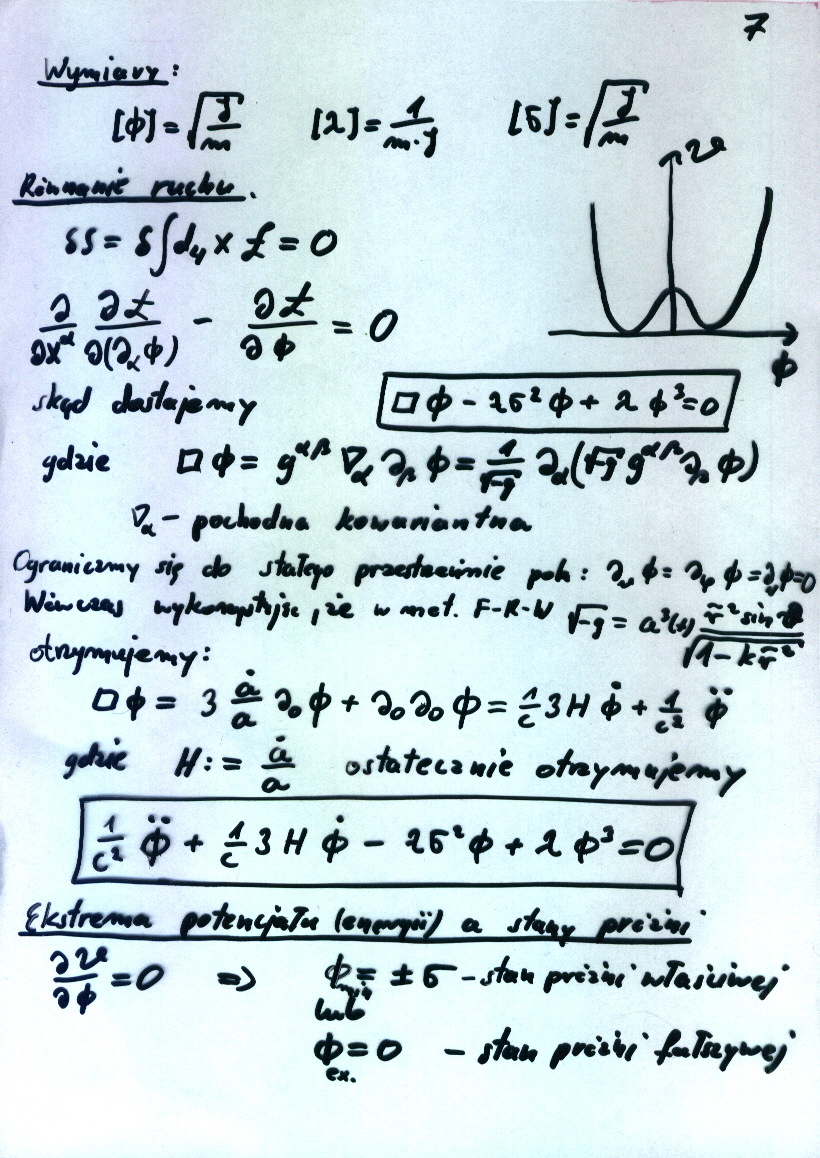 7
Wymiary:
[ϕ] = √(J/m) [λ] = 1/(m·J) [σ] = √(J/m)
Równanie ruchu.
V
δS = δ∫d₄x ℒ = 0
∂/∂x^α ∂ℒ/∂(∂_α ϕ) - ∂ℒ/∂ϕ = 0
ϕ
skąd dostajemy □ϕ - λσ²ϕ + λϕ³ = 0
gdzie □ϕ = g^{αβ} ∇_α ∂_β ϕ = 1/√-g ∂_α(√-g g^{αβ} ∂_β ϕ)
∇_α - pochodna kowariantna
Ograniczmy się do stałego przestrzennie pola: ∂_ν ϕ = ∂_φ ϕ = ∂_r ϕ = 0
Wówczas wykorzystując, że w met. F-R-W √-g = a³(t) r̃² sin ϑ / √(1-k r̃²)
otrzymujemy:
□ϕ = 3 ȧ/a ∂₀ϕ + ∂₀∂₀ϕ = 1/c 3H ϕ̇ + 1/c² ϕ̈
gdzie H := ȧ/a ostatecznie otrzymujemy
1/c² ϕ̈ + 1/c 3H ϕ̇ - λσ²ϕ + λϕ³ = 0
Ekstrema potencjału (energii) a stany próżni
∂V/∂ϕ = 0 ⇒ ϕ_min = ±σ - stan próżni właściwej
lub
ϕ_ex. = 0 - stan próżni fałszywej